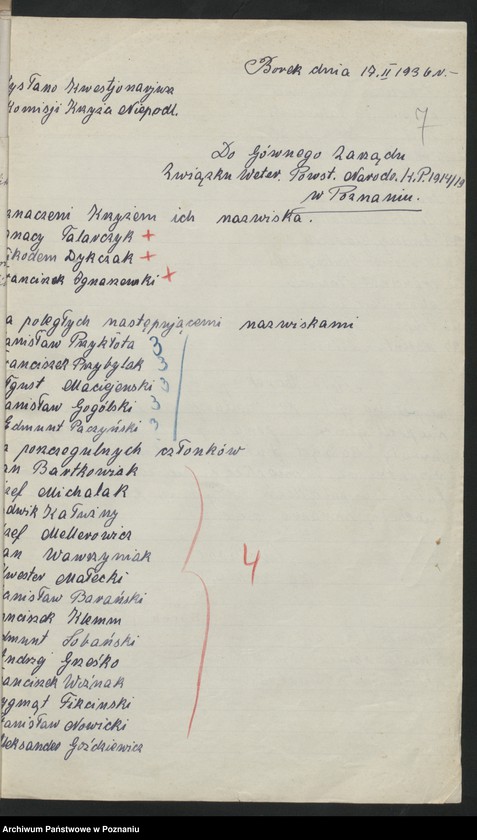 Borek dnia 17.II 1936 r.-
ysłano Kwestjonarjusz
Komisji Krzyża Niepodl.
7
Do Gównego Zarządu
Związku Weter. Powst. Narodo. R.P. 1914/19
w Poznaniu.
znaczeni Krzyżem ich nazwiska.
gnacy Talarczyk +
ikodem Dykczak +
ranciszek Ignaszewski +
a poległych następującemi nazwiskami
anisław Przykłota 3
ranciszek Przybylak 3
Maciejewski 3
anisław Gogólski 3
Edmunt Paczyński 3
poszczogulnych członków
an Bartkowiak
zef Michalak
udwik Kałużny
ózef Mellerowicz
an Wawrzyniak
lwester Małecki
anisław Barański
anciszek Klemm
dmunt Łobański
Andrzej Grześko
anciszek Woźniak
ygmąt Fikciński
anisław Nowicki
Aleksander Goździewicz
4
Archiwum Państwowe w Poznaniu